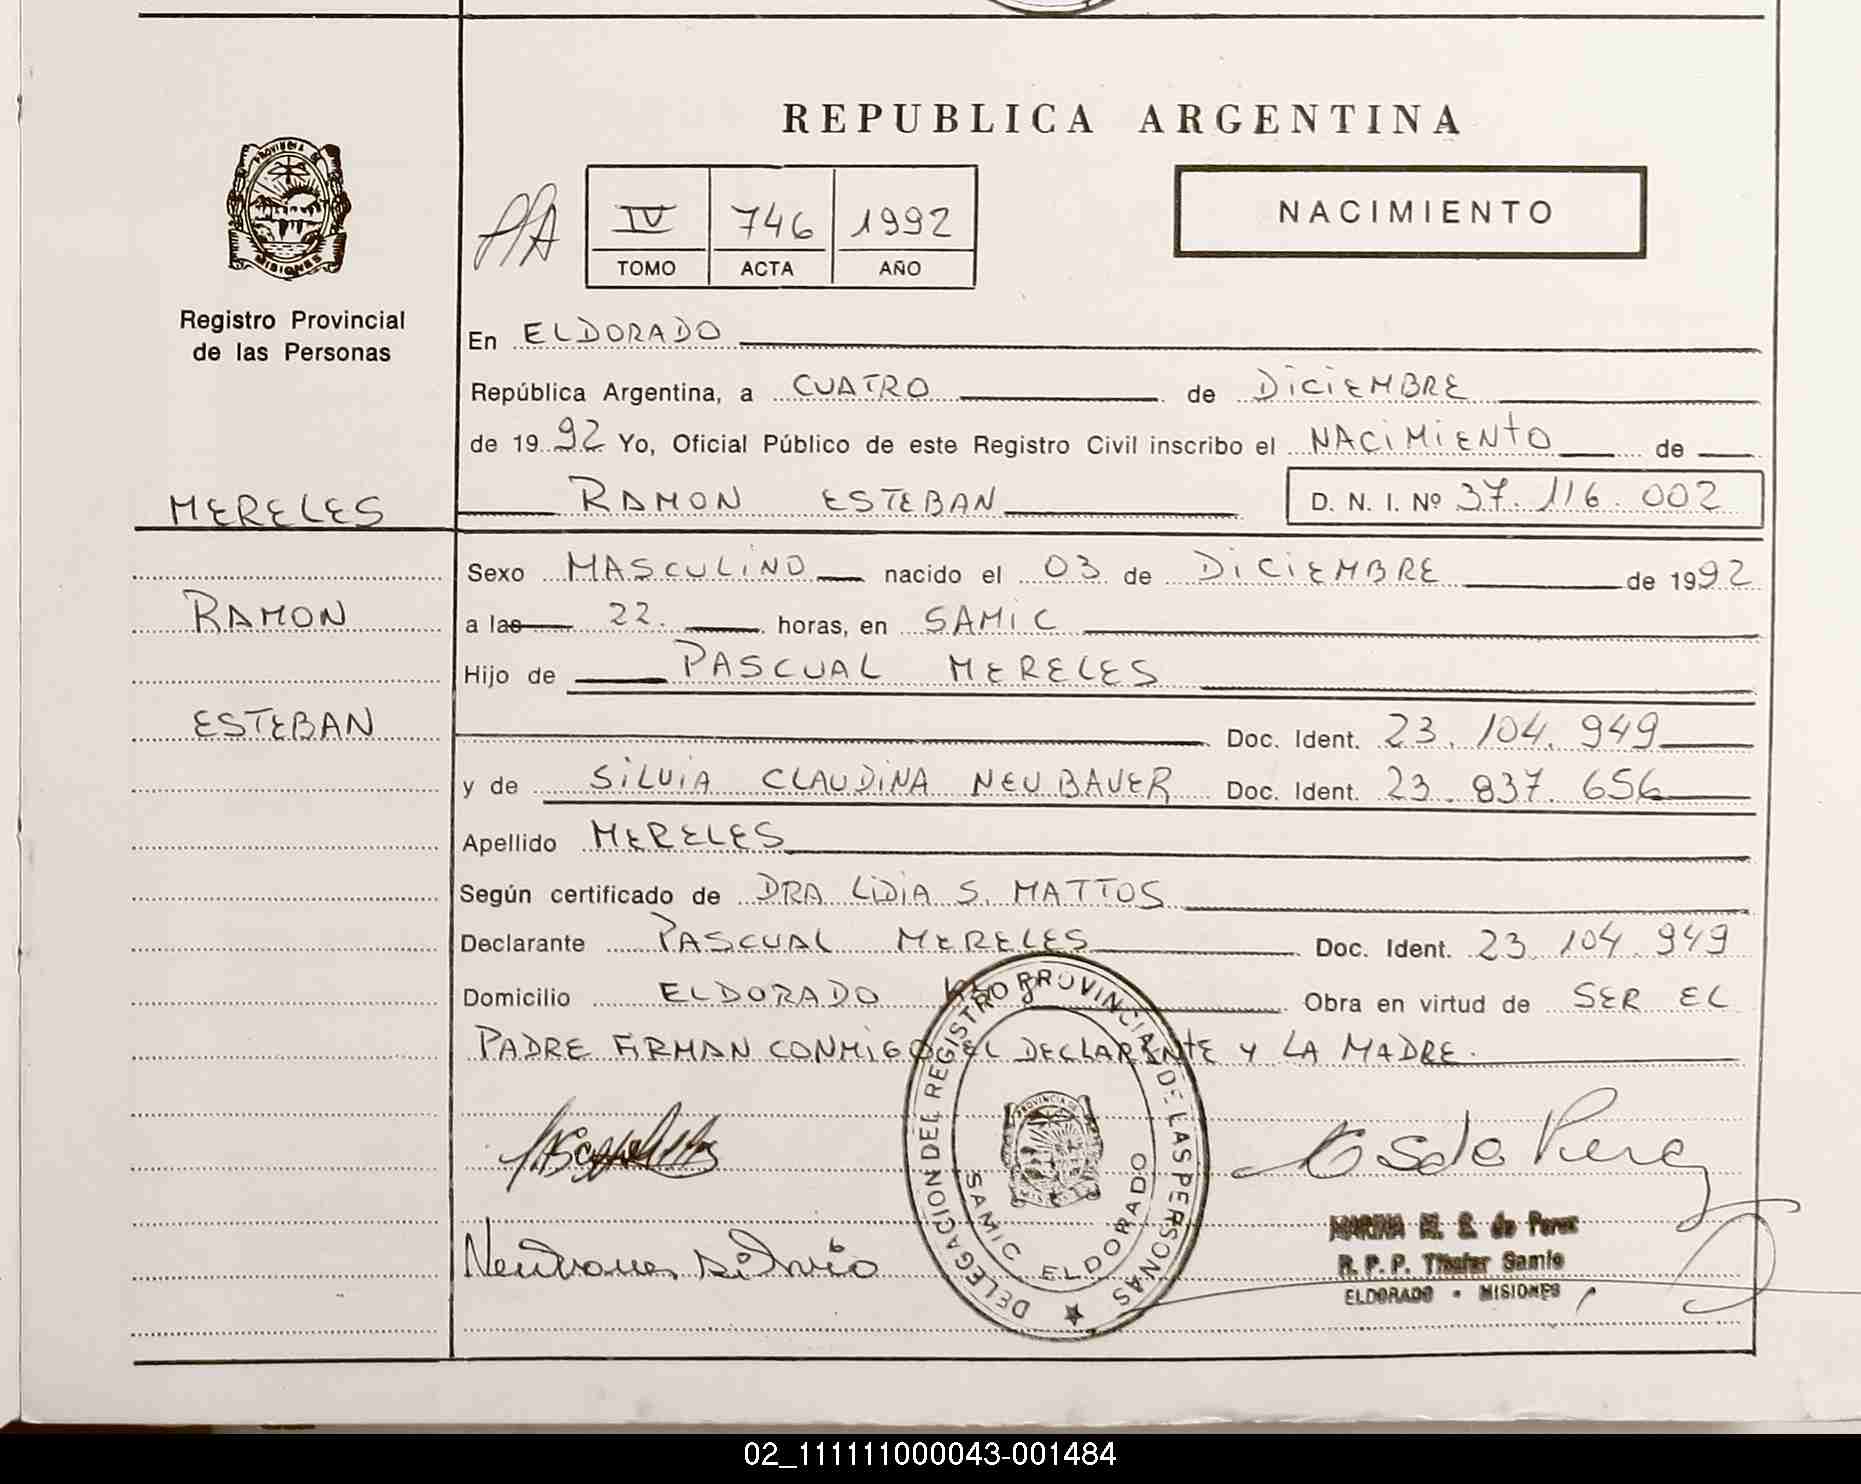 REPUBLICA ARGENTINA
PROVINCIA DE
MISIONES
Registro Provincial
de las Personas
IV 746 1992
TOMO ACTA AÑO
NACIMIENTO
En ELDORADO
República Argentina, a CUATRO de DICIEMBRE
de 1992 Yo, Oficial Público de este Registro Civil inscribo el NACIMIENTO de
MERELES
RAMON ESTEBAN D. N. I. Nº 37.116.002
Sexo MASCULINO nacido el 03 de DICIEMBRE de 1992
RAMON
a las 22. horas, en SAMIC
Hijo de PASCUAL MERELES
ESTEBAN
Doc. Ident. 23.104.949
y de SILVIA CLAUDINA NEUBAUER Doc. Ident. 23.837.656
Apellido MERELES
Según certificado de DRA LIDIA S. MATTOS
Declarante PASCUAL MERELES Doc. Ident. 23.104.949
Domicilio ELDORADO Obra en virtud de SER EL
PADRE FIRMAN CONMIGO EL DECLARANTE Y LA MADRE.
DELEGACION DEL REGISTRO PROVINCIAL DE LAS PERSONAS
PROVINCIA DE
SAMIC ELDORADO
MARINA M. S. de Perez
R. P. P. Titular Samic
ELDORADO - MISIONES
02_111111000043-001484